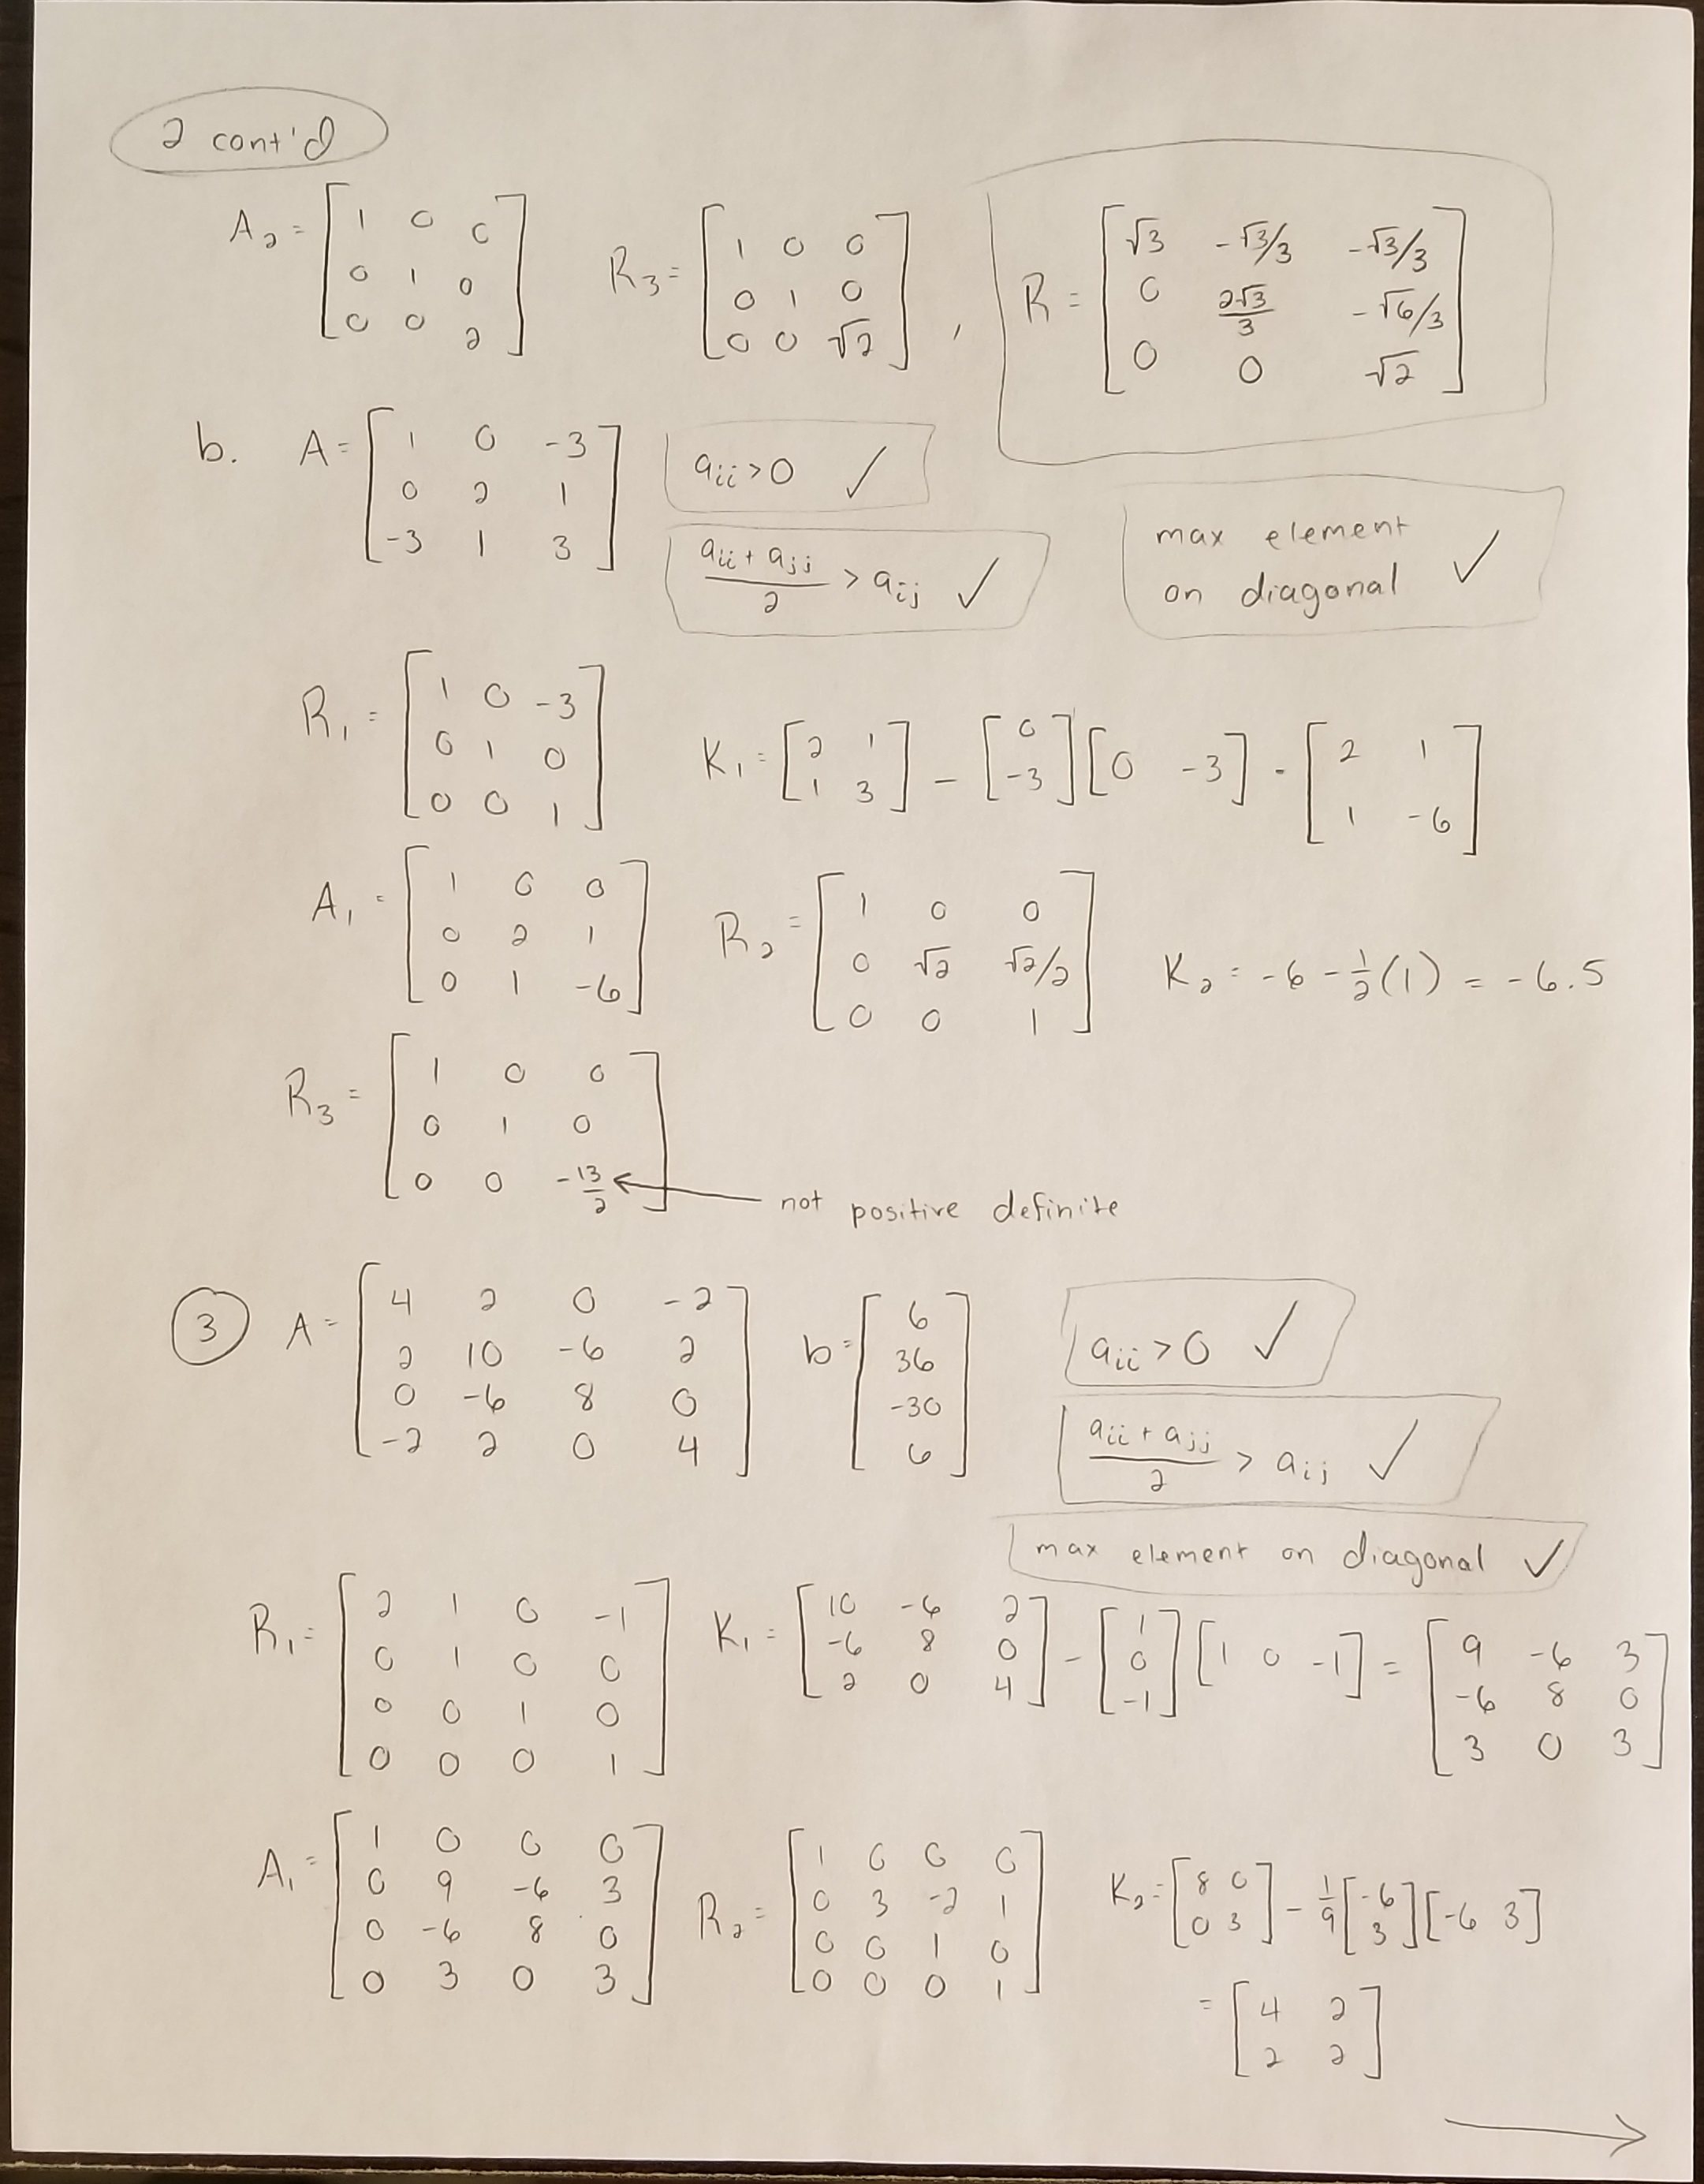 2 cont'd
A₂ = [1 0 0; 0 1 0; 0 0 2] R₃ = [1 0 0; 0 1 0; 0 0 √2], R = [√3 -√3/3 -√3/3; 0 2√3/3 -√6/3; 0 0 √2]
b. A = [1 0 -3; 0 2 1; -3 1 3] aᵢᵢ > 0 ✓
(aᵢᵢ + aⱼⱼ)/2 > aᵢⱼ ✓
max element
on diagonal ✓
R₁ = [1 0 -3; 0 1 0; 0 0 1] K₁ = [2 1; 1 3] - [0; -3][0 -3] = [2 1; 1 -6]
A₁ = [1 0 0; 0 2 1; 0 1 -6] R₂ = [1 0 0; 0 √2 √2/2; 0 0 1] K₂ = -6 - 1/2(1) = -6.5
R₃ = [1 0 0; 0 1 0; 0 0 -13/2] ← not positive definite
3 A = [4 2 0 -2; 2 10 -6 2; 0 -6 8 0; -2 2 0 4] b = [6; 36; -30; 6] aᵢᵢ > 0 ✓
(aᵢᵢ + aⱼⱼ)/2 > aᵢⱼ ✓
max element on diagonal ✓
R₁ = [2 1 0 -1; 0 1 0 0; 0 0 1 0; 0 0 0 1] K₁ = [10 -6 2; -6 8 0; 2 0 4] - [1; 0; -1][1 0 -1] = [9 -6 3; -6 8 0; 3 0 3]
A₁ = [1 0 0 0; 0 9 -6 3; 0 -6 8 0; 0 3 0 3] R₂ = [1 0 0 0; 0 3 -2 1; 0 0 1 0; 0 0 0 1] K₂ = [8 0; 0 3] - 1/9[-6; 3][-6 3]
= [4 2; 2 2]
→